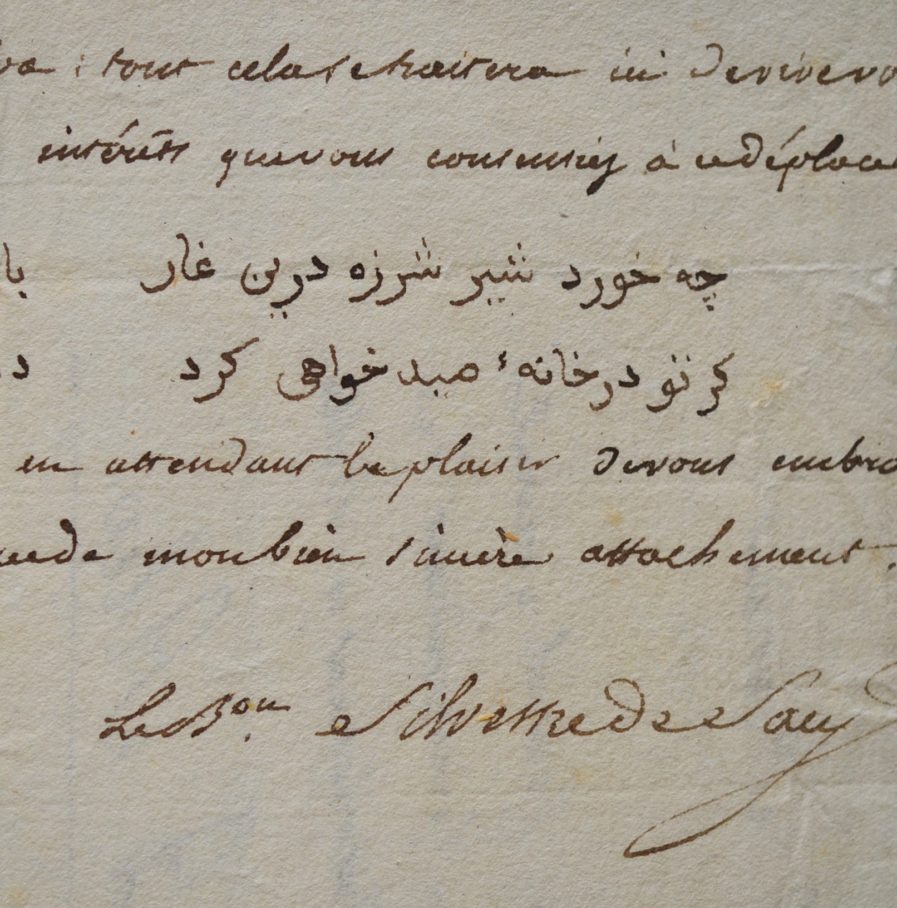 va : tout cela se traitera ici de vive vo
intérêts que vous consensiez à ce déplace
چه خورد شیر شرزه درین غار با
کر تو درخانهٔ صید خواهی کرد د
en attendant le plaisir de vous embra
de mon bien sincère attachement.
Le Bon. Silvestre de Sacy